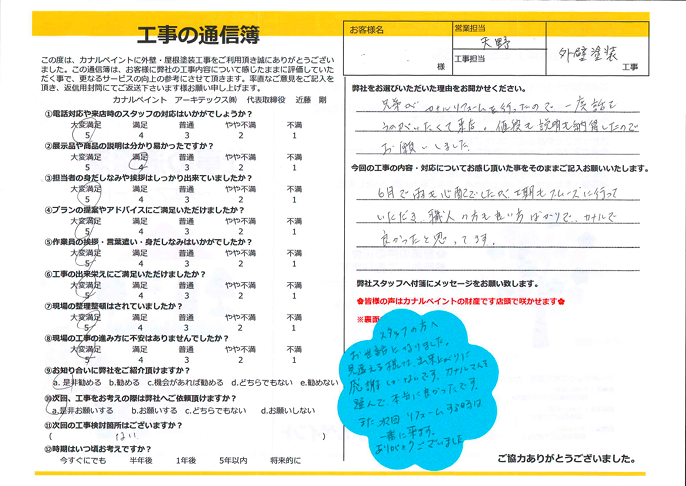 工事の通信簿
この度は、カナルペイントに外壁・屋根塗装工事をご利用頂き誠にありがとうござい
ました。この通信簿は、お客様に弊社の工事内容について感じたままに評価していた
だく事で、更なるサービスの向上の参考にさせて頂きます。率直なご意見をご記入
頂き、返信用封筒にてご返送下さいます様お願い申し上げます。
カナルペイント　アーキテックス㈱　代表取締役　近藤　剛
①電話対応や来店時のスタッフの対応はいかがでしょうか？
大変満足　満足　普通　やや不満　不満
5　4　3　2　1
②展示品や商品の説明は分かり易かったですか？
大変満足　満足　普通　やや不満　不満
5　4　3　2　1
③担当者の身だしなみや挨拶はしっかり出来ていましたか？
大変満足　満足　普通　やや不満　不満
5　4　3　2　1
④プランの提案やアドバイスにご満足いただけましたか？
大変満足　満足　普通　やや不満　不満
5　4　3　2　1
⑤作業員の挨拶・言葉遣い・身だしなみはいかがでしたか？
大変満足　満足　普通　やや不満　不満
5　4　3　2　1
⑥工事の出来栄えにご満足いただけましたか？
大変満足　満足　普通　やや不満　不満
5　4　3　2　1
⑦現場の整理整頓はされていましたか？
大変満足　満足　普通　やや不満　不満
5　4　3　2　1
⑧現場の工事の進み方に不安はありませんでしたか？
大変満足　満足　普通　やや不満　不満
5　4　3　2　1
⑨お知り合いに弊社をご紹介頂けますか？
a. 是非勧める　b.勧める　c.機会があれば勧める　d.どちらでもない　e.勧めない
⑩次回、工事をお考えの際は弊社へご依頼頂けますか？
a.是非お願いする　b.お願いする　c.どちらでもない　d.お願いしない
⑪次回の工事検討箇所はございますか？
（　ない　）
⑫時期はいつ頃お考えですか？
今すぐにでも　半年後　1年後　5年以内　将来的に
お客様名
様
営業担当
天野
工事担当
外壁塗装
工事
弊社をお選びいただいた理由をお聞かせください。
兄弟がカナルリフォームを行ったので一度話を
うかがいたくて来店。値段も説明も納得したので
お願いしました
今回の工事の内容・対応についてお感じ頂いた事をそのままご記入お願いいたします。
6月で雨も心配でしたが工期もスムーズに行って
いただき、職人の方も良い方ばかりで、カナルで
良かったと思ってます。
弊社スタッフへ付箋にメッセージをお願い致します。
✿皆様の声はカナルペイントの財産です店頭で咲かせます✿
※裏面
スタッフの方へ
お世話となりました。
見違える様な、出来上がりに
感謝しかないです。カナルさんを
選んで、本当に良かったです。
また次回リフォームする時は
一番に来ます。
ありがとうございました
ご協力ありがとうございました。